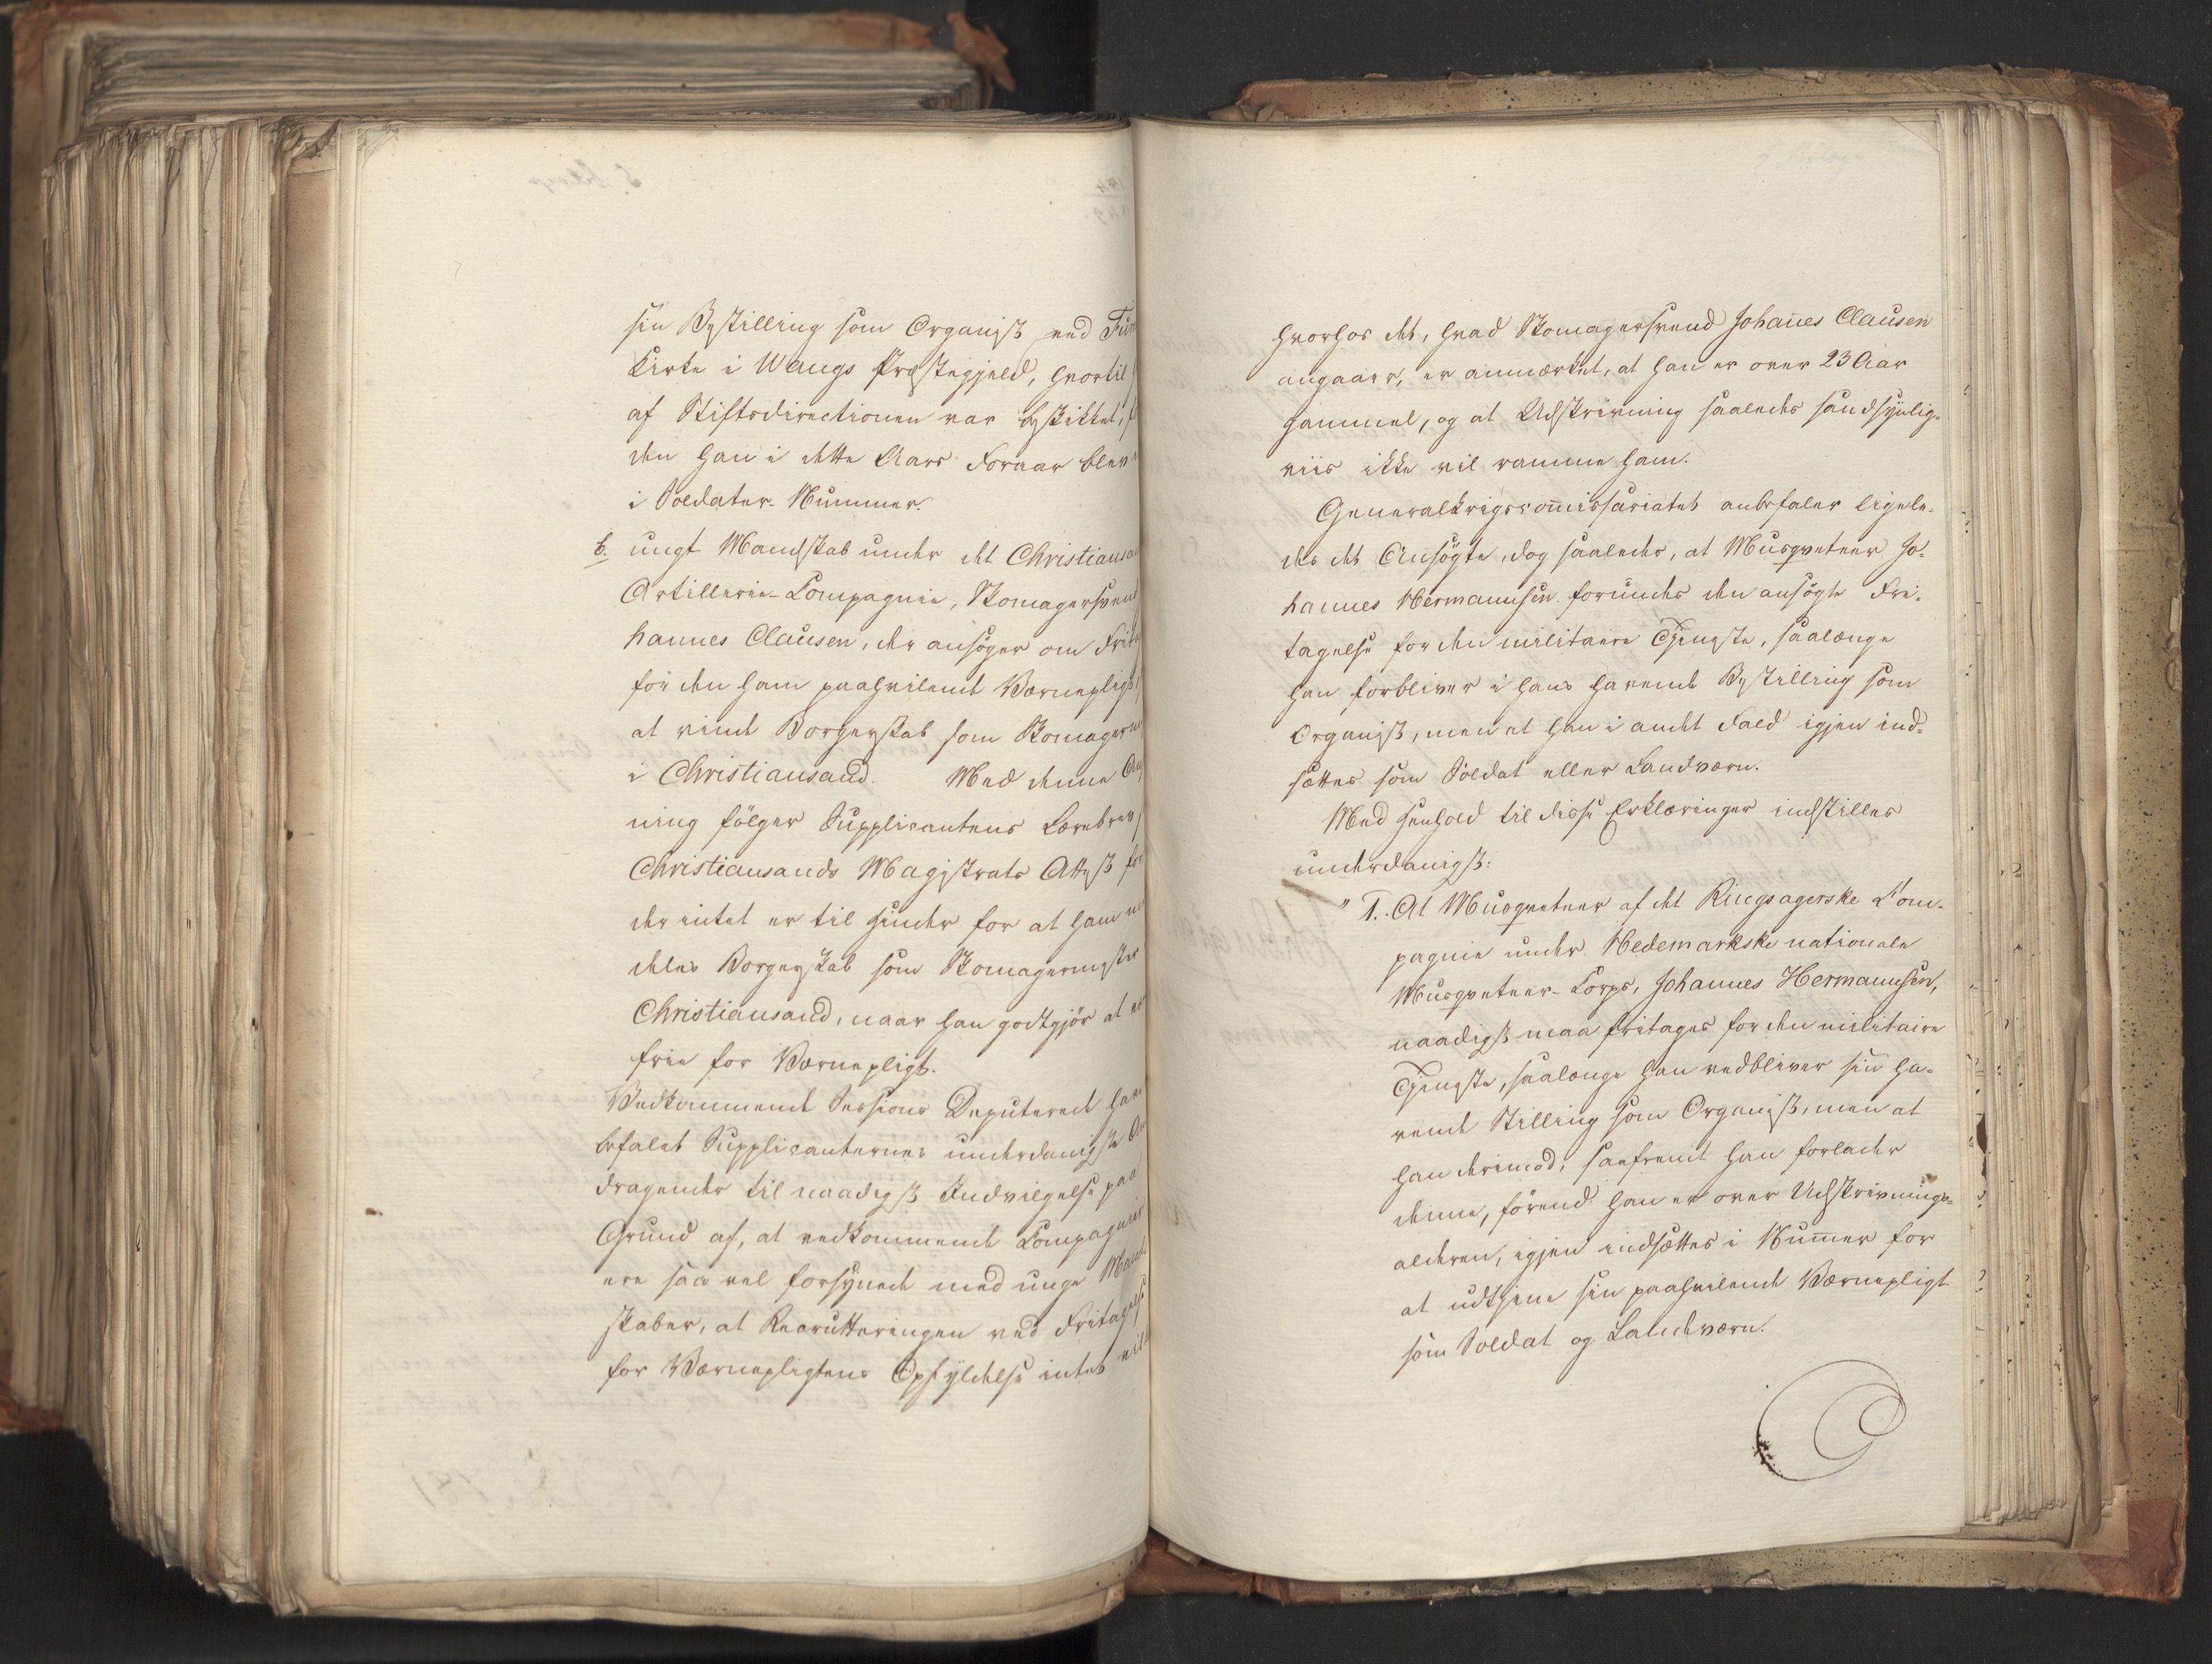 sin Bestilling som Organist ved Fur
Kirke i Wangs Præstegjeld, hvortil
af Stiftsdirectionen var beskikket,
den han i dette Aars Foraar blev
i Soldater-Nummer.
b. ungt Mandskab under det Christians
Artillerie-Compagnie, Skomagersvend
hannes Clausen, der ansøger om Frit
for den ham paahvilende Værnepligt,
at vinde Borgerskab som Skomager
i Christiansand. Med denne An
ning følger Supplicantens Lærebrev
Christiansands Magistrats Attest for
der intet er til Hinder for at ham m
deles Borgerskab som Skomagermester
Christiansand, naar han godtgjør at
frie for Værnepligt.
Vedkommende Sessions Deputerede have
befalet Supplicanternes underdanigste An
dragender til naadigst Indvilgelse paa
Grund af, at vedkommende Compagnier
ere saa vel forsynede med unge Mand
skaber, at Recrutteringen ved Fritagelse
for Værnepligtens Opfyldelse intet vil
hvorhos det, hvad Skomagersvend Johannes Clausen
angaaer, er anmærket, at han er over 23 Aar
gammel, og at Udskrivning saaledes sandsynlig-
viis ikke vil ramme ham.
Generalkrigscommissariatet anbefaler ligele-
des det Ansøgte, dog saaledes, at Musqueteer Jo-
hannes Hermannsen forundes den ansøgte Fri-
tagelse for den militaire Tjeneste, saalænge
han forbliver i hans havende Bestilling som
Organist, men at han i andet Fald igjen ind-
sættes som Soldat eller Landværn.
Med Henhold til disse Erklæringer indstilles
underdanigst:
" 1. At Musqueteer af det Ringsagerske Com-
pagnie under Hedemarkske nationale
Musqueteer-Corps, Johannes Hermannsen,
naadigst maa fritages for den militaire
Tjeneste, saalænge han vedbliver sin ha-
vende Stilling som Organist, men at
han derimod, saafremt han forlader
denne, førend han er over Udskrivnings-
alderen, igjen indsættes i Nummer for
at udtjene sin paahvilende Værnepligt
som Soldat og Landeværn.